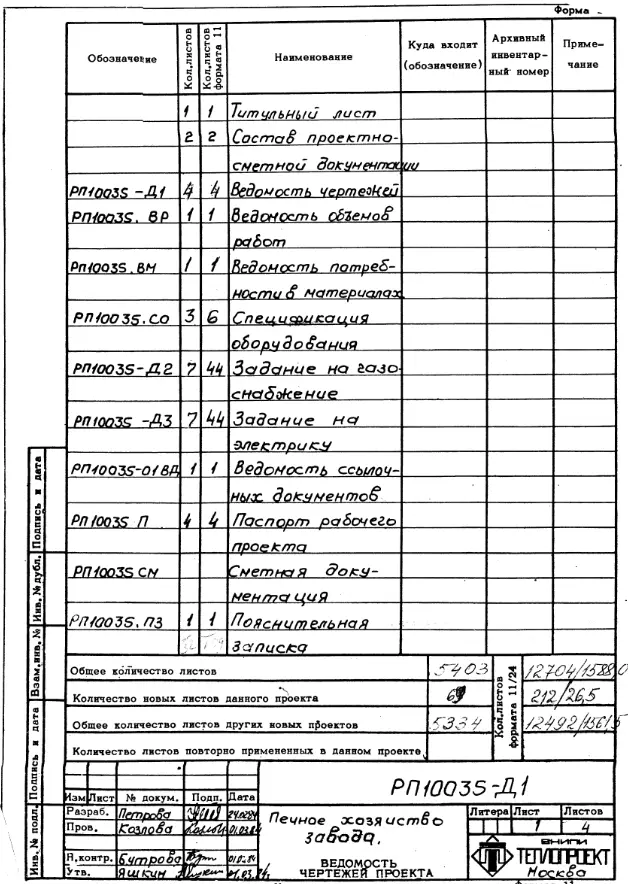 Форма
Обозначение
Кол.листов
Кол.листов формата 11
Наименование
Куда входит (обозначение)
Архивный инвентарный номер
Примечание
1 1 Титульный лист
2 2 Состав проектно-
сметной документации
РП10035-Д1 4 4 Ведомость чертежей
РП10035. ВР 1 1 Ведомость объемов
работ
РП10035.ВМ 1 1 Ведомость потреб-
ности в материалах
РП10035.СО 3 6 Спецификация
оборудования
РП10035-Д2 7 44 Задание на газо-
снабжение
РП10035-Д3 7 44 Задание на
электрику
РП10035-01ВД 1 1 Ведомость ссылоч-
ных документов
РП10035 П 4 4 Паспорт рабочего
проекта
РП10035СМ Сметная доку-
ментация
РП10035.ПЗ 1 1 Пояснительная
записка
Общее количество листов 5403
Количество новых листов данного проекта
Общее количество листов других новых проектов 5334
Количество листов повторно примененных в данном проекте
Кол.листов формата 11/24
12704/1588,0
212/26,5
12492/1561,5
Инв.№ подл. Подпись и дата Взам.инв.№ Инв.№дубл. Подпись и дата
РП10035-Д1
Изм Лист № докум. Подп. Дата
Разраб. Петрова
Пров. Козлова
Н.контр. Бутрова
Утв. Яшкин
Печное хозяйство
завода.
ВЕДОМОСТЬ
ЧЕРТЕЖЕЙ ПРОЕКТА
Литера Лист Листов
1 4
ВНИПИ
ТЕПЛОПРОЕКТ
Москва